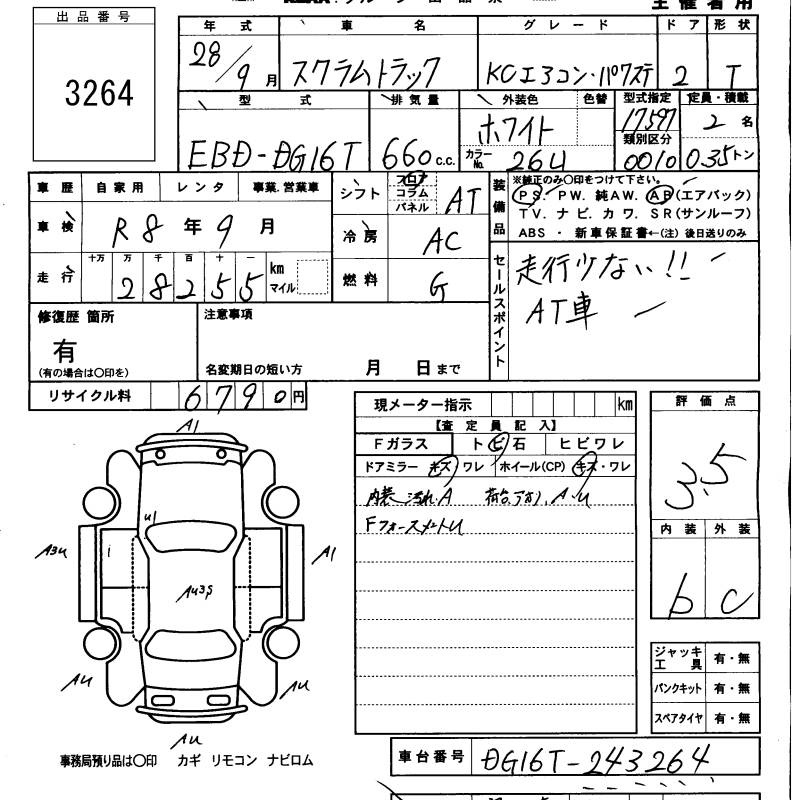 出品番号
3264
主催者用
年式 車名 グレード ドア 形状
28/9月 スクラムトラック KCエアコン・パワステ 2 T
型式 排気量 外装色 色替 型式指定 定員・積載
EBD-DG16T 660c.c. ホワイト 17597 2名
カラーNo. 26U 類別区分 0010 0.35トン
車歴 自家用 レンタ 事業.営業車
シフト フロア コラム パネル AT
車検 R8年9月
冷房 AC
走行 十万 万 千 百 十 一 km マイル
28255
燃料 G
装備品
※純正のみ〇印をつけて下さい。
PS. PW. 純AW. AB(エアバック)
TV. ナビ. カワ. SR(サンルーフ)
ABS ・ 新車保証書←(注)後日送りのみ
セールスポイント
走行少ない!!
AT車
修復歴 箇所
有
(有の場合は〇印を)
注意事項
名変期日の短い方 月 日まで
リサイクル料 6790円
現メーター指示 km
【査定員記入】
Fガラス トビ石 ヒビワレ
ドアミラー キズ ワレ ホイール(CP) キズ・ワレ
内装 汚れ A A.U
評価点
3.5
内装 外装
b C
A1
U1
A3U
i
A1
AU3S
AU
AU
AU
ジャッキ工具 有・無
パンクキット 有・無
スペアタイヤ 有・無
事務局預り品は〇印 カギ リモコン ナビロム
車台番号 DG16T-243264